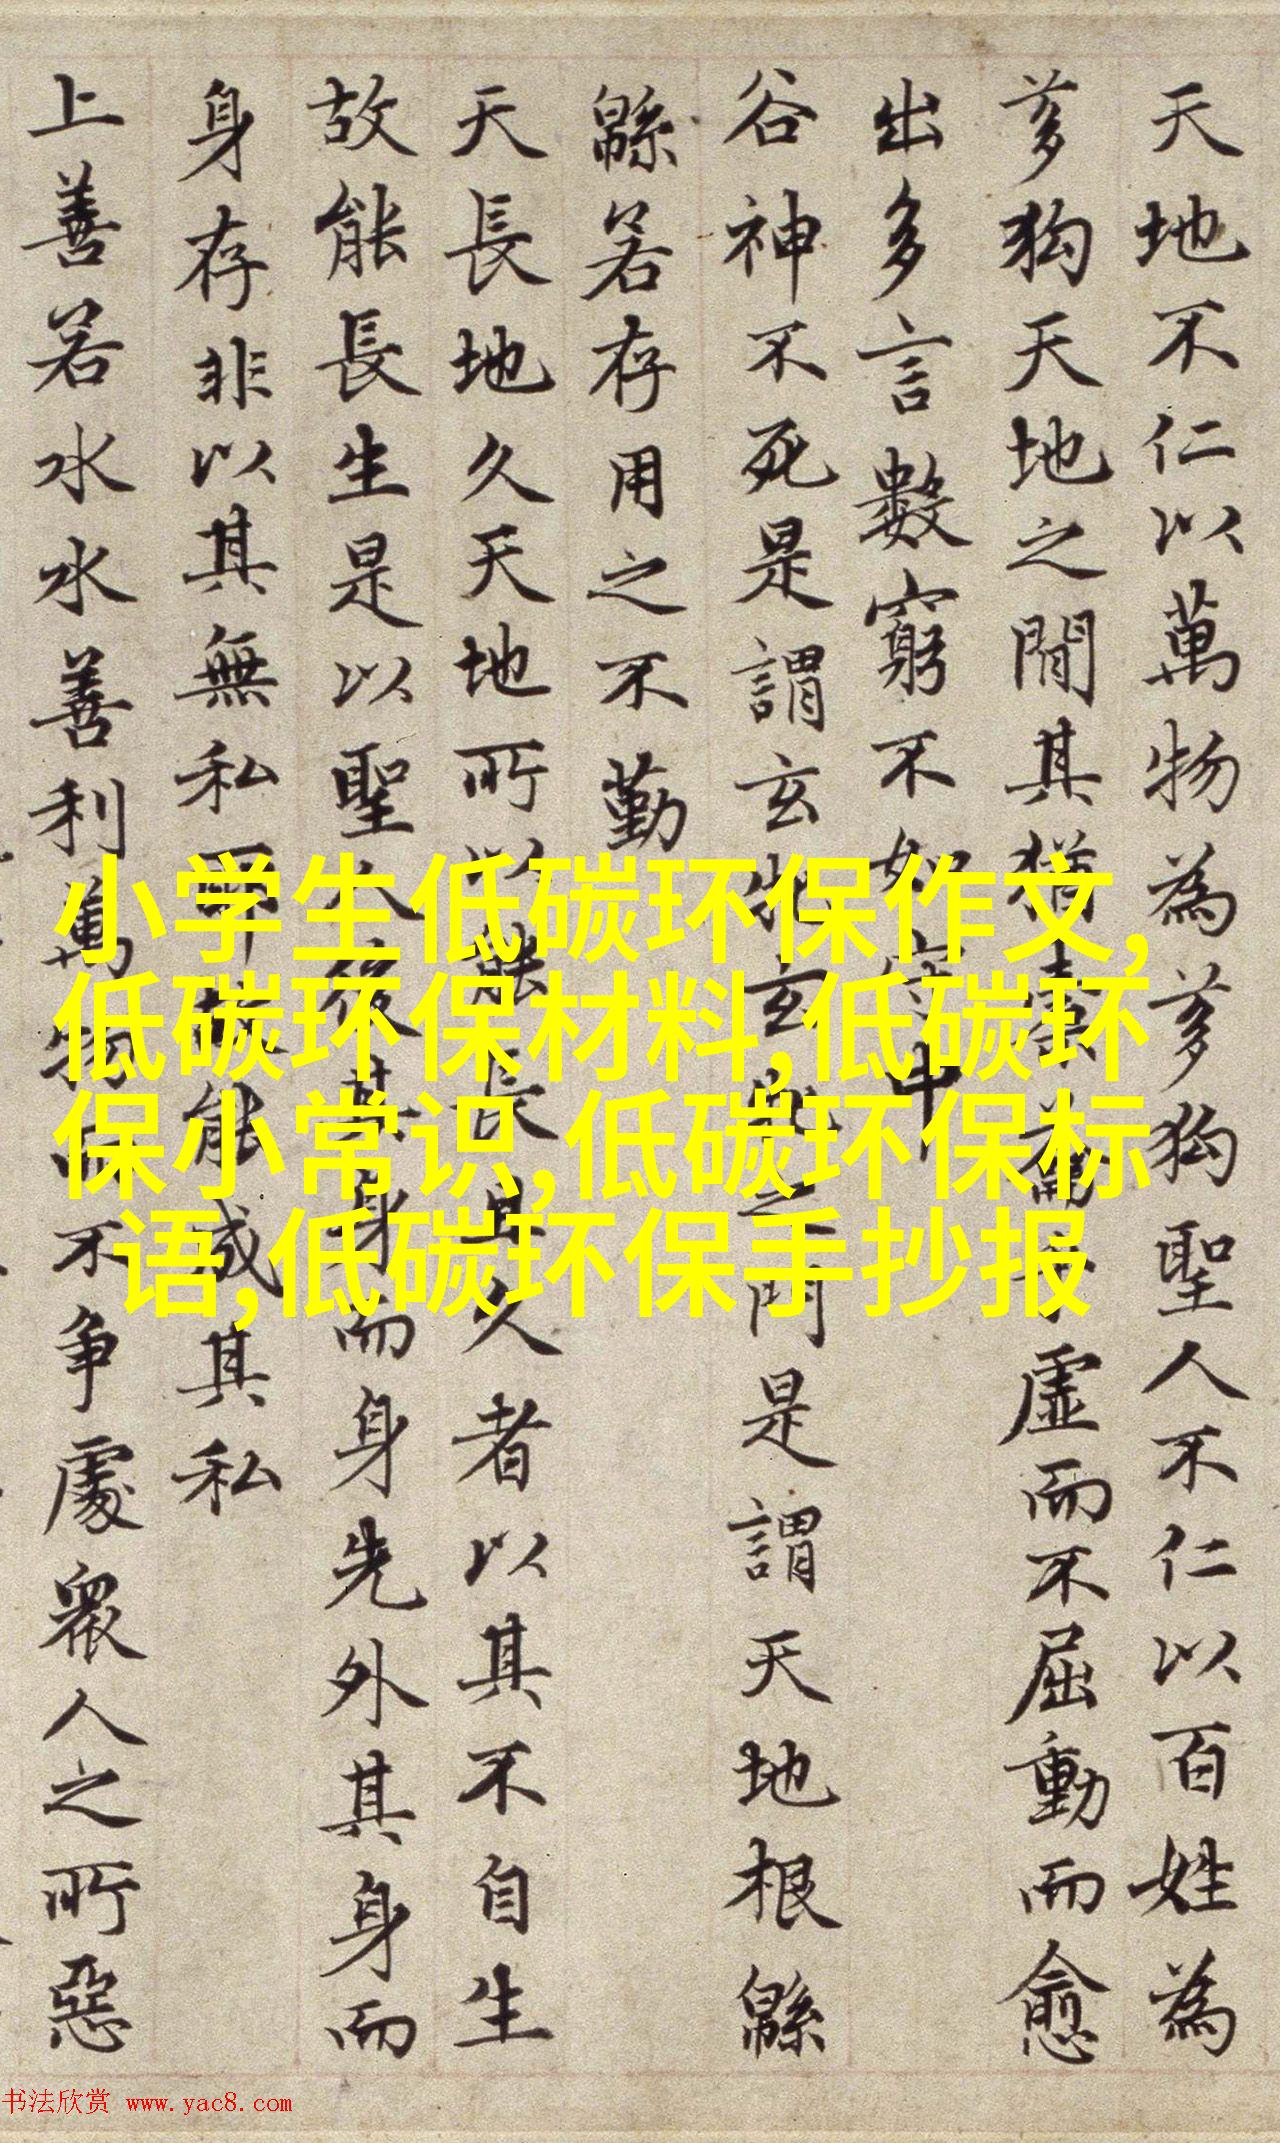 天地不仁以萬物為芻狗聖人不仁以百姓為
芻狗天地之間其猶橐籥乎虛而不屈動而愈
出多言數窮不如守中
谷神不死是謂玄牝玄牝之門是謂天地根緜
緜若存用之不勤
天長地久天地所以能長且久者以其不自生
故能長生是以聖人後其身而身先外其身而
身存非以其無私耶故能成其私
上善若水水善利萬物而不争處衆人之所惡
小学生低碳环保作文,
低碳环保材料,低碳环
保小常识,低碳环保标
语,低碳环保手抄报
书法欣赏 www.yac8.com